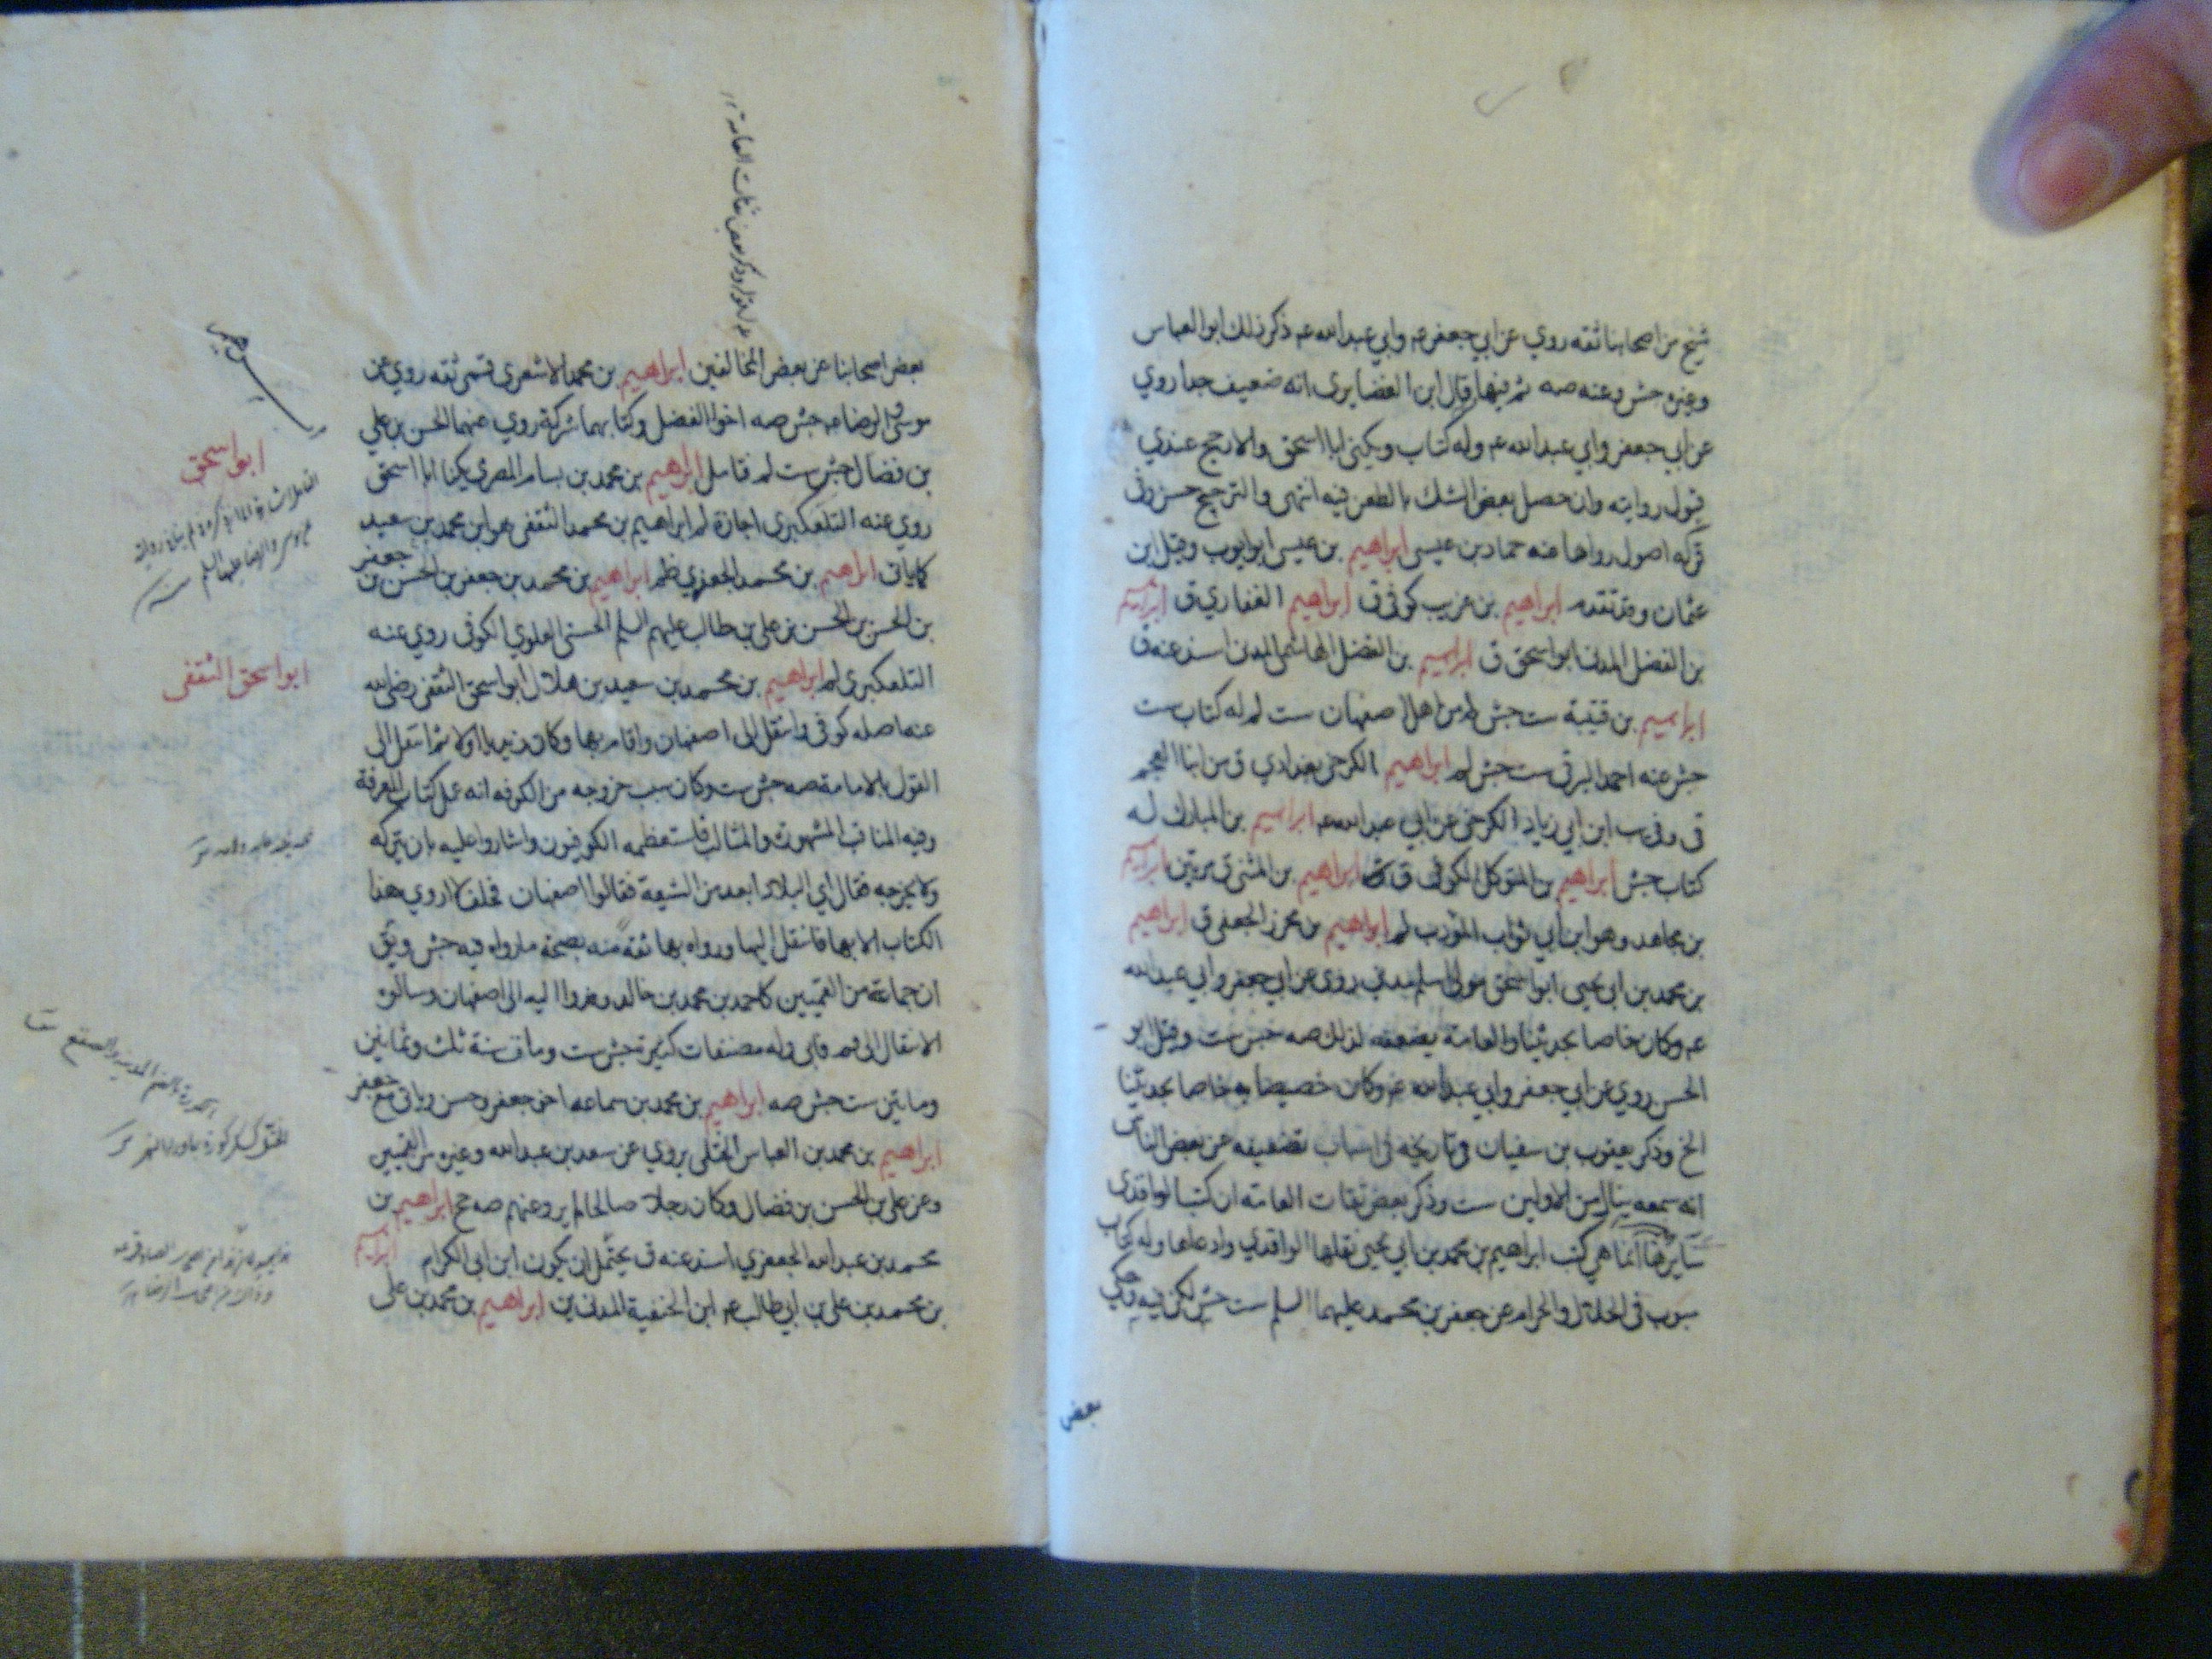 شيخ من اصحابنا ثقه روي عن ابي جعفر عم وابي عبد الله عم ذكر ذلك ابو العباس
وغيره جش وعنه صه ثم فيها وقال ابن الغضايرى انه ضعيف جدا روي
عن ابي جعفر وابي عبد الله عم وله كتاب ويكنى ابا اسحق والارجح عندي
قبول روايته وان حصل بعض الشك بالطعن فيه انتهى والترجيح حسن وفى
تركه اصول رواها عنه حماد بن عيسى ابراهيم بن عيسى ابو ايوب وقيل ابن
عثمان وقد تقدم ابراهيم بن عزيب كوفى ق ابراهيم الغفاري ق ابراهيم
بن الفضل المدنى ابو اسحق ق ابراهيم بن الفضل الهاشمى المدنى اسند عنه ق
ابراهيم بن قتيبة ست جش لم من اهل اصفهان ست لم له كتاب ست
جش عنه احمد البرقى ست جش لم ابراهيم الكرخى بغدادي ق من ابنا العجم
قى وفى ست ابن ابي زياد الكرخى عن ابي عبد الله عم ابراهيم بن المبارك له
كتاب جش ابراهيم بن المتوكل الكوفى ق ابراهيم بن المثنى ق مرتين ابراهيم
بن مجاهد وهو ابن ابي ثواب المؤدب لم ابراهيم بن محرز الجعفى ق ابراهيم
بن محمد بن ابى يحيى ابو اسحق مولى اسلم مدنى روى عن ابي جعفر وابي عبد الله
عم وكان خاصا بحديثنا والعامة يضعفه لذلك صه جش ست وقيل ابو
الحسن روي عن ابي جعفر وابي عبد الله عم وكان خصيصا به خاصا بحديثنا
الخ وذكر يعقوب بن سفيان فى تاريخه فى اسباب تضعيفه عن بعض الناس
انه سمعه ينال من الاولين ست وذكر بعض ثقات العامه ان كتب الواقدى
سايرها انما هي كتب ابراهيم بن محمد بن ابي يحيى نقلها الواقدي وادعاها وله كتاب
مبوب فى الحلال والحرام عن جعفر بن محمد عليهما السلم ست جش لكن فيه وحكى
بعض
بعض اصحابنا عن بعض المخالفين ابراهيم بن محمد الاشعرى قمى ثقه روي عن
موسى والرضا عم جش صه اخو الفضل وكتابهما شركة روي عنهما الحسن بن علي
بن فضال جش ست لم ابراهيم بن محمد بن بسام المصرى يكنا ابا اسحق
روي عنه التلعكبرى اجازة لم ابراهيم بن محمد الثقفى هو ابن محمد بن سعيد
كما ياتى ابراهيم بن محمد الجعفري ظم ابراهيم بن محمد بن جعفر بن الحسن بن جعفر
بن الحسن بن الحسن بن على بن طالب عليهم السلم الحسنى العلوي الكوفى روي عنه
التلعكبرى لم ابراهيم بن محمد بن سعيد بن هلال ابو اسحق الثقفى رضى الله
عنه اصله كوفى وانتقل الى اصفهان واقام بها وكان زيديا اولا ثم انتقل الى
القول بالامامة صه جش ست وكان سبب خروجه من الكوفه انه عمل كتاب المعرفة
وفيه المناقب المشهوره والمثالب فاستعظمه الكوفيون واشاروا عليه بان يتركه
ولا يخرجه فقال اي البلاد ابعد من الشيعة فقالوا اصفهان فحلف لا اروي هذا
الكتاب الا بها فانتقل اليها ورواه بها ثقة منه بصحة ما رواه فيه جش وبق
ان جماعة من القميين كاحمد بن محمد بن خالد وفدوا اليه الى اصفهان وسالوه
الانتقال الى قم فابى وله مصنفات كثيرة جش ست ومات سنة ثلث وثمانين
ومايتين ست جش صه ابراهيم بن محمد بن سماعه اخو جعفر وحسن وياتى مع جعفر
ابراهيم بن محمد بن العباس الختلى يروي عن سعد بن عبد الله وغيره من القميين
وعن على بن الحسن بن فضال وكان رجلا صالحا لم يرو عنهم صه جخ ابراهيم بن
محمد بن عبد الله الجعفري اسند عنه ق يحتمل ان يكون ابن ابى الكرام ابراهيم
بن محمد بن على بن ابي طالب عم ابن الحنفية المدنى ين ابراهيم بن محمد بن على
ابو اسحق
ابو اسحق الثقفى